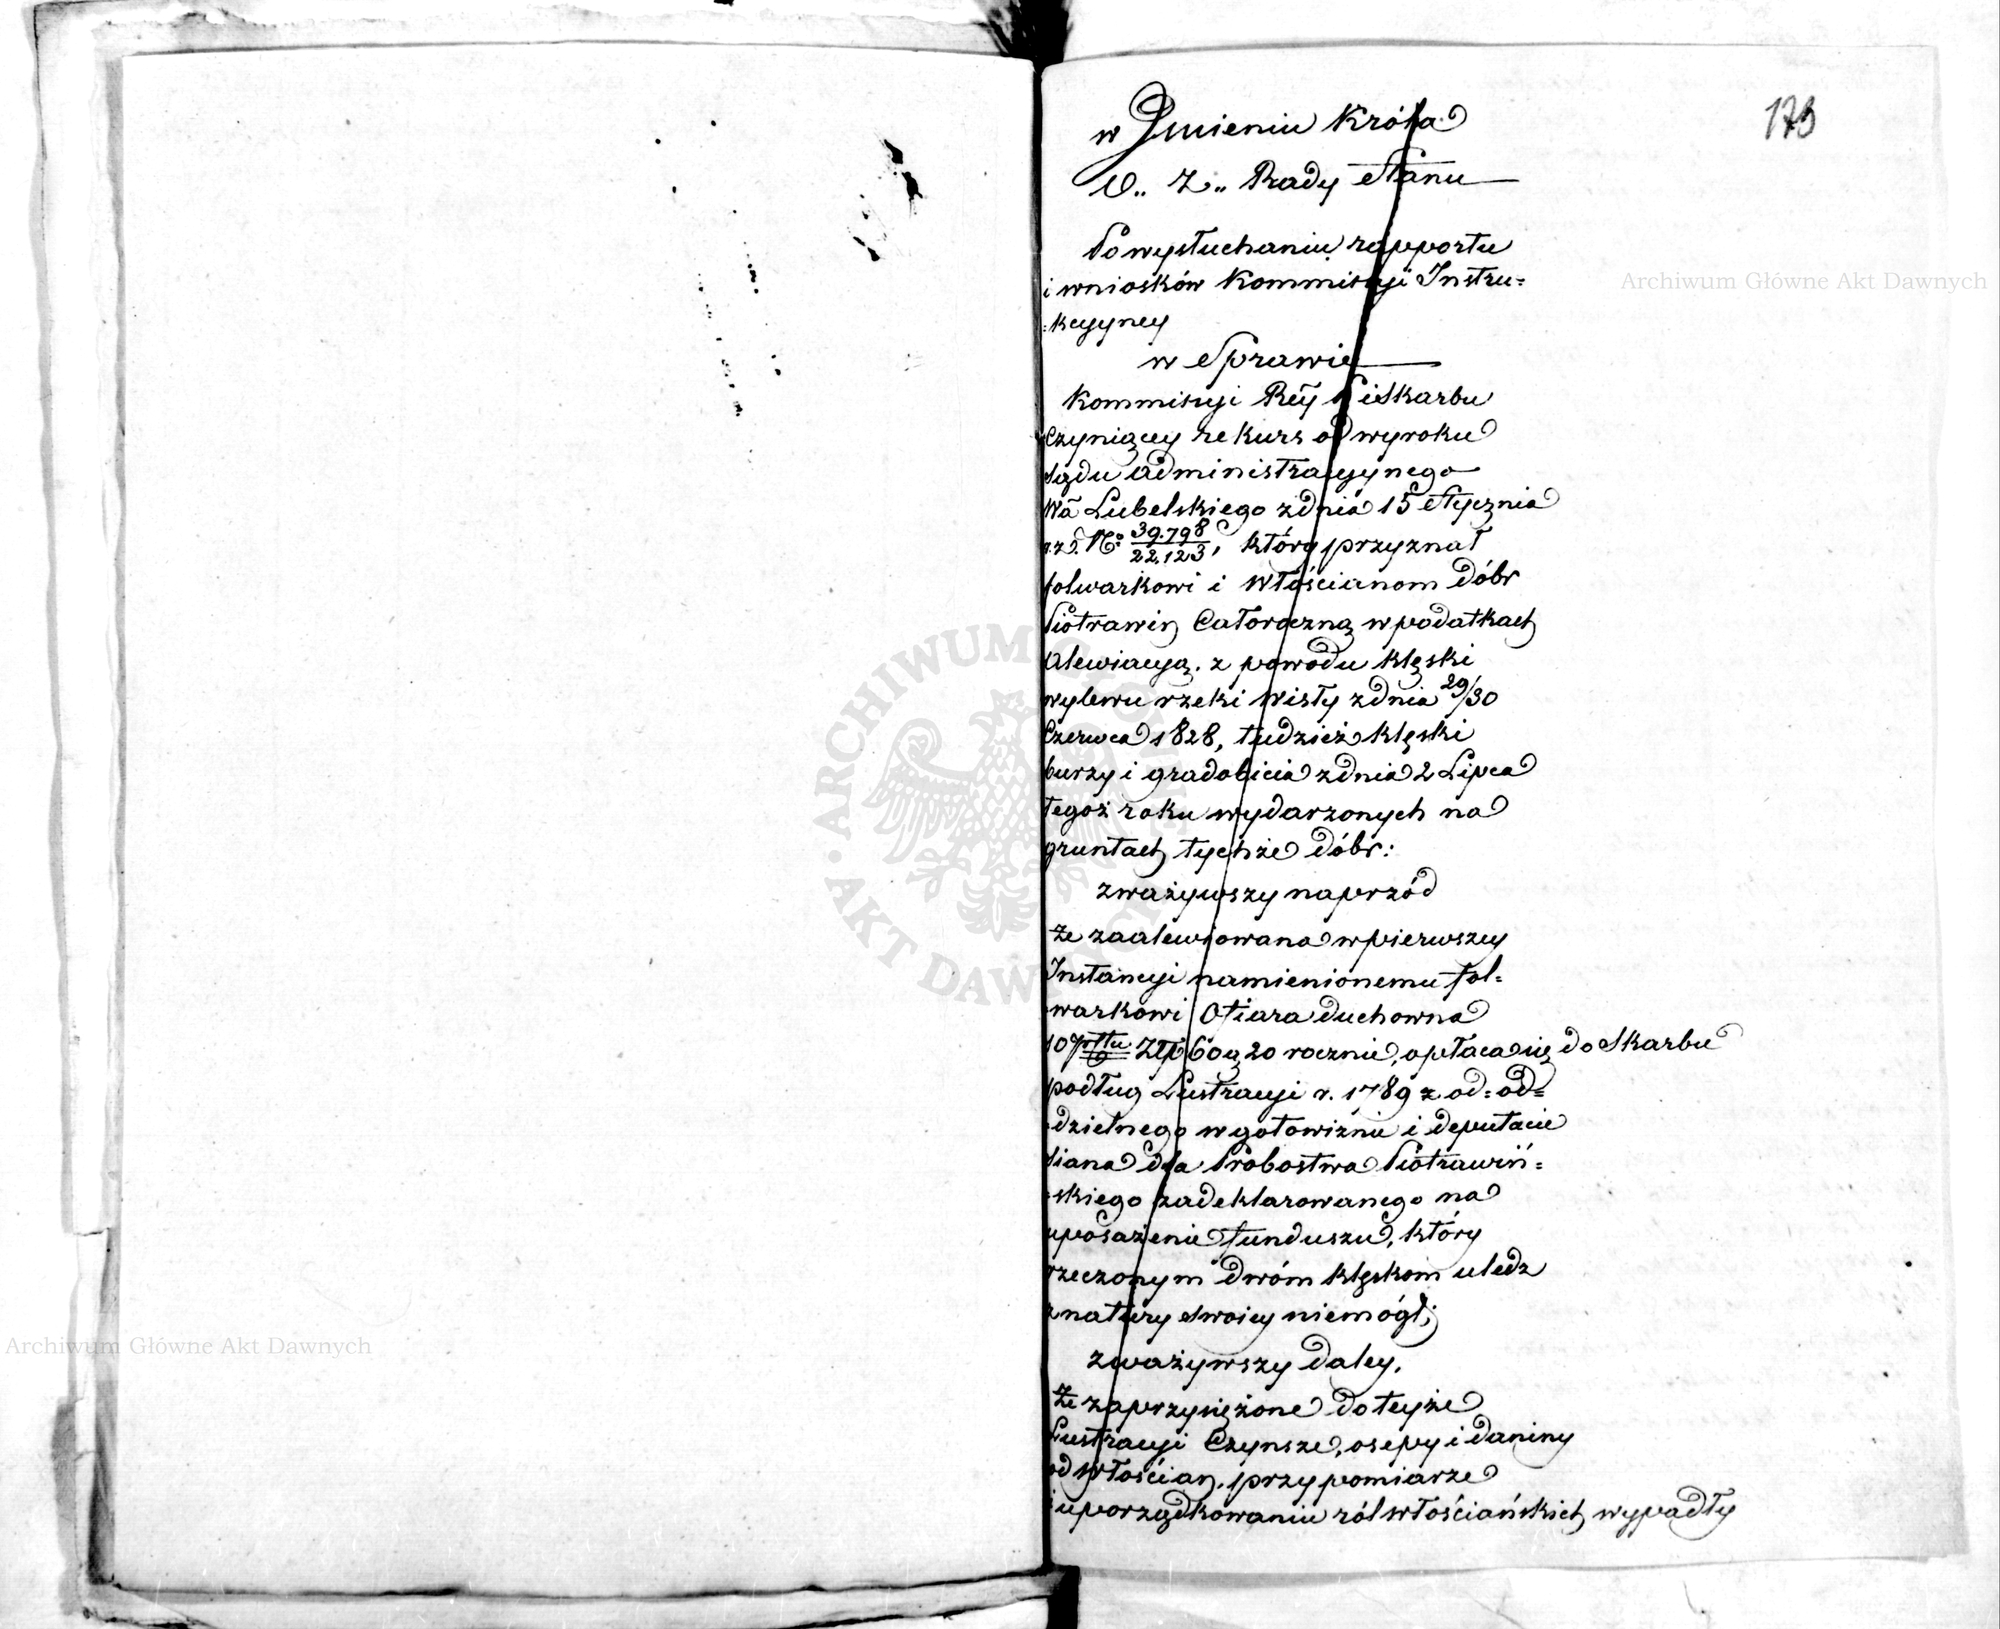 173
w Imieniu Króla
O.. Z.. Rady Stanu
Po wysłuchaniu rapportu
i wniosków Kommissyi Instru=
=kcyyney
w Sprawie
Kommissyi Rey P i Skarbu
Czyniącey rekurs od wyroku
Sądu administracyynego
Wa Lubelskiego z dnia 15 Stycznia
r.z. No 39.798/22.123, który przyznał
folwarkowi i Włościanom dóbr
Piotrawin Całoroczną w podatkach
Alewiacyą. z powodu klęski
wylewu rzeki Wisły z dnia 29/30
Czerwca 1828, tudzież klęski
burzy i gradobicia z dnia 2 Lipca
tegoż roku wydarzonych na
gruntach tychże dóbr:
zważywszy naprzód
że zaalewiowana w pierwszey
Instancyi namienionemu fol=
warkowi Ofiara duchowna
10 Złp 60 g 20 rocznie, opłaca się do Skarbu
podług Lustracyi r. 1789 z od= od=
dzielnego w gotowiznie i deputacie
siana dla Probostwa Piotrawiń=
=skiego zadeklarowanego na
uposażenie funduszu, który
rzeczonym dwóm klęskom uledz
z natury swoiey niemógł;
zważywszy daley,
że zaprzysiężone do teyże
Lustracyi Czynsze, osepy i daniny
od Włościan, przy pomiarze
i uporządkowaniu ról włościańskich wypadły
Archiwum Główne Akt Dawnych
Archiwum Główne Akt Dawnych
ARCHIWUM GŁÓWNE AKT DAWNYCH